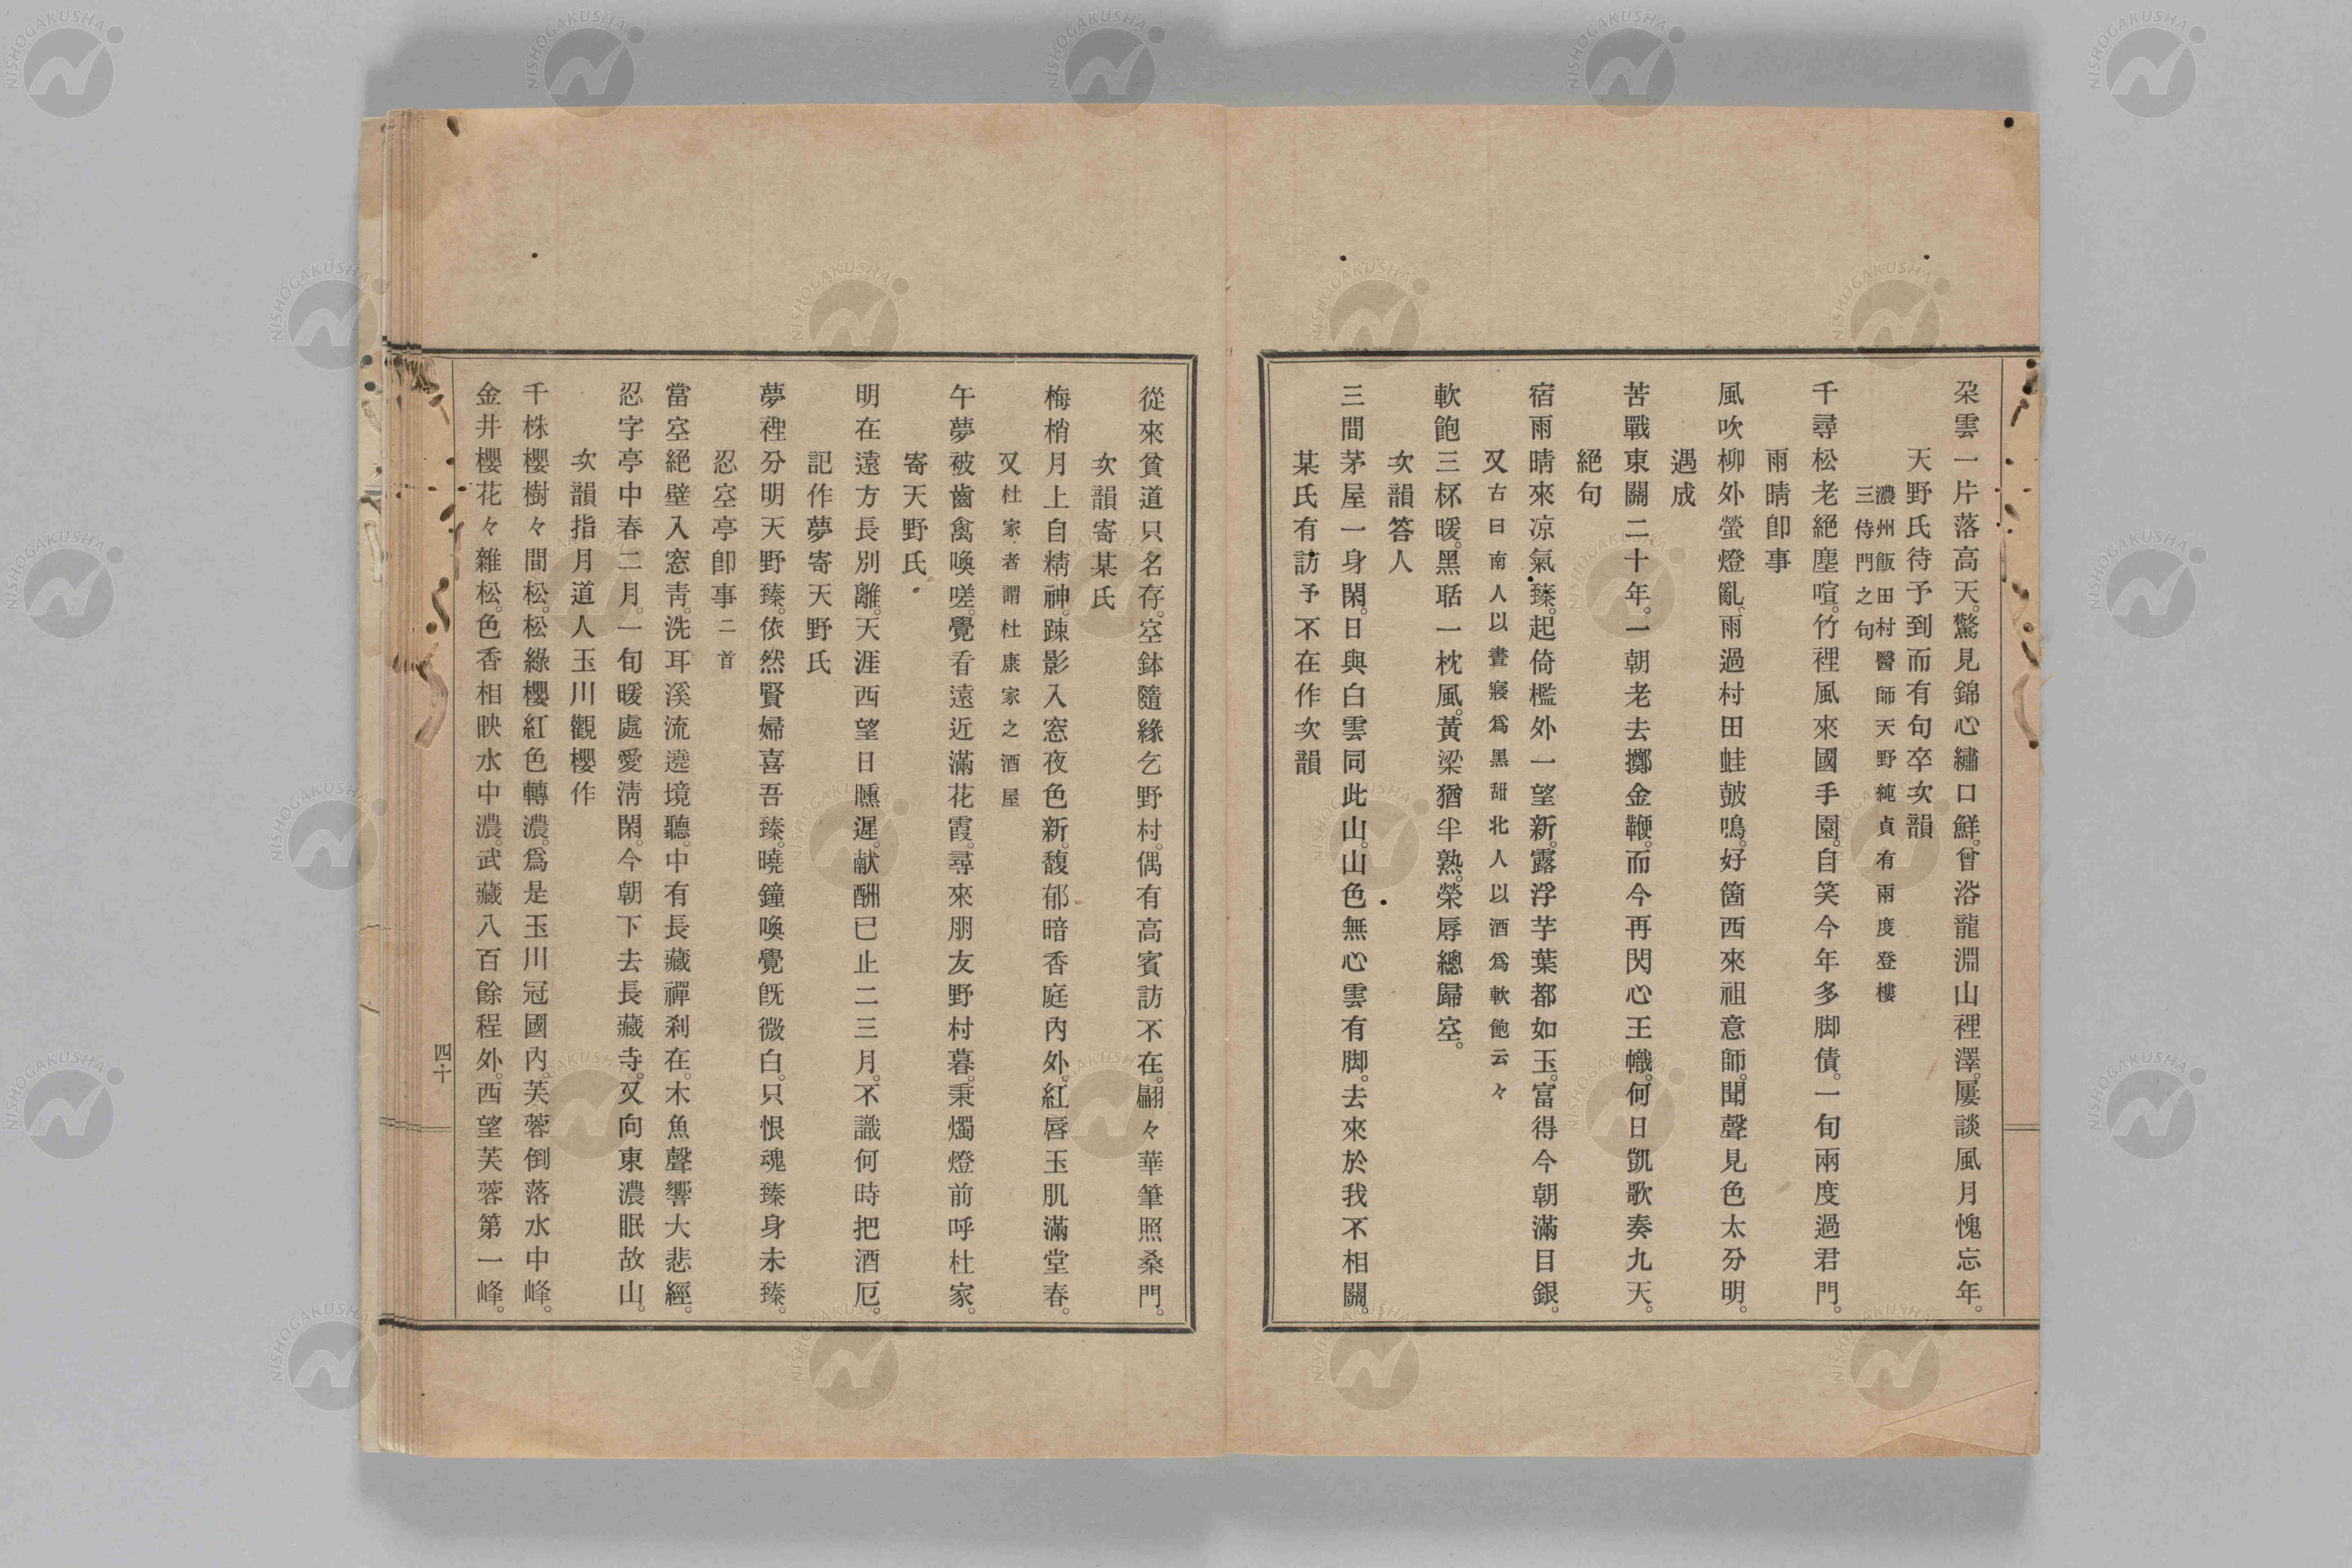 朶雲一片落高天。驚見錦心繡口鮮。曾浴龍淵山裡澤。屢談風月愧忘年。
天野氏待予到而有句卒次韻
濃州飯田村醫師天野純貞有兩度登樓
三侍門之句
千尋松老絕塵喧。竹裡風來國手園。自笑今年多脚債。一旬兩度過君門。
雨晴卽事
風吹柳外螢燈亂。雨過村田蛙鼓鳴。好箇西來祖意師。聞聲見色太分明。
遇成
苦戰東關二十年。一朝老去擲金鞭。而今再閃心王幟。何日凱歌奏九天。
絕句
宿雨晴來凉氣臻。起倚檻外一望新。露浮芋葉都如玉。富得今朝滿目銀。
又古曰南人以晝寢爲黑甜北人以酒爲軟飽云々
軟飽三杯暖。黑聒一枕風。黃梁猶半熟。榮辱總歸空。
次韻答人
三間茅屋一身閑。日與白雲同此山。山色無心雲有脚。去來於我不相關。
某氏有訪予不在作次韻
從來貧道只名存。空鉢隨緣乞野村。偶有高賓訪不在。翩々華筆照桑門。
次韻寄某氏
梅梢月上自精神。踈影入窓夜色新。馥郁暗香庭內外。紅唇玉肌滿堂春。
又杜家者謂杜康家之酒屋
午夢被齒禽喚嗟。覺看遠近滿花霞。尋來朋友野村暮。秉燭燈前呼杜家。
寄天野氏
明在遠方長別離。天涯西望日曛遲。献酬已止二三月。不識何時把酒巵。
記作夢寄天野氏
夢裡分明天野臻。依然賢婦喜吾臻。曉鐘喚覺旣微白。只恨魂臻身未臻。
忍空亭卽事二首
當空絕壁入窓靑。洗耳溪流遶境聽。中有長藏禪刹在。木魚聲響大悲經。
忍字亭中春二月。一旬暖處愛淸閑。今朝下去長藏寺。又向東濃眠故山。
次韻指月道人玉川觀櫻作
千株櫻樹々間松。松綠櫻紅色轉濃。爲是玉川冠國內。芙蓉倒落水中峰。
金井櫻花々雜松。色香相映水中濃。武藏八百餘程外。西望芙蓉第一峰。
四十